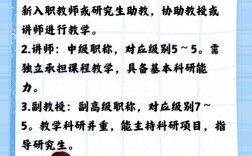 新入职教师或研究生助教，协助教授或
讲师进行教学。
2.讲师：中级职称，对应级别5～5。需
独立承担课程教学，具备基本科研能
力。
3.副教授：副高级职称，对应级别7～
5。教学科研并重，能主持科研项目，指
导研究生。